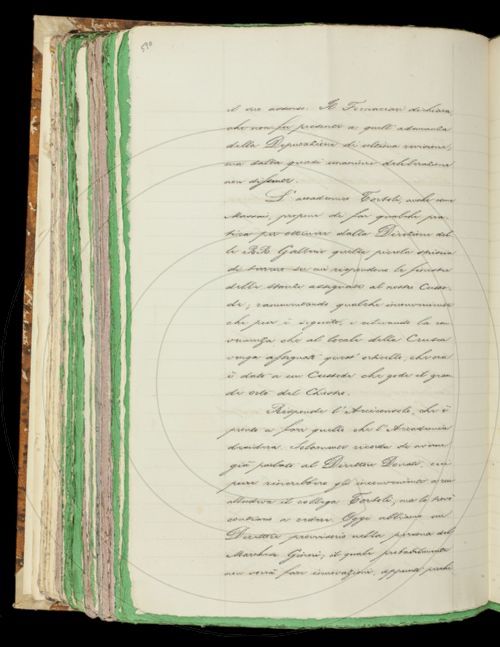 590
il suo assenso. Il Fornaciari dichiara
che non fu presente a quell'adunanza
della Deputazione di                    
ma dalla quasi unanime deliberazione
non dissente.
L'accademico Tortoli, anche come
Massaio, propone di far qualche pra-
tica per ottenere dalla Direzione del-
le RR. Gallerie quella piccola striscia
di terrazzo su cui rispondono le finestre
delle stanze assegnate al nostro Custo-
de; rammentando qualche inconveniente
che pure è seguito, e
che al locale della Crusca
venga assegnato
è dato a un Custode che gode il gran-
de orto del Chiostro.
Risponde l'Arciconsolo, che è
pronto a fare quello che l'Accademia
desidera. Solamente ricorda di averne
già parlato al Direttore Donati, cui
pure                gli inconvenienti a cui
alludeva il collega Tortoli; ma lo trovò
contrario a cedere. Oggi abbiamo un
Direttore provvisorio nella persona del
Marchese          il quale probabilmente
non vorrà fare innovazioni, appunto perché